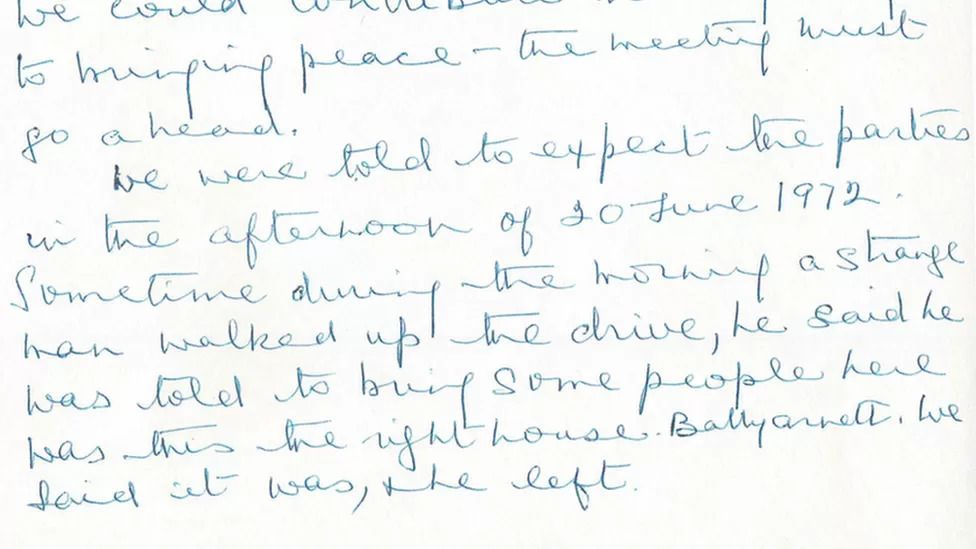 we could contribute
to bringing peace – the meeting must
go ahead.
We were told to expect the parties
in the afternoon of 20 June 1972.
Sometime during the morning a strange
man walked up the drive, he said he
was told to bring some people here
was this the right house. Ballyarnett. We
said it was, & he left.